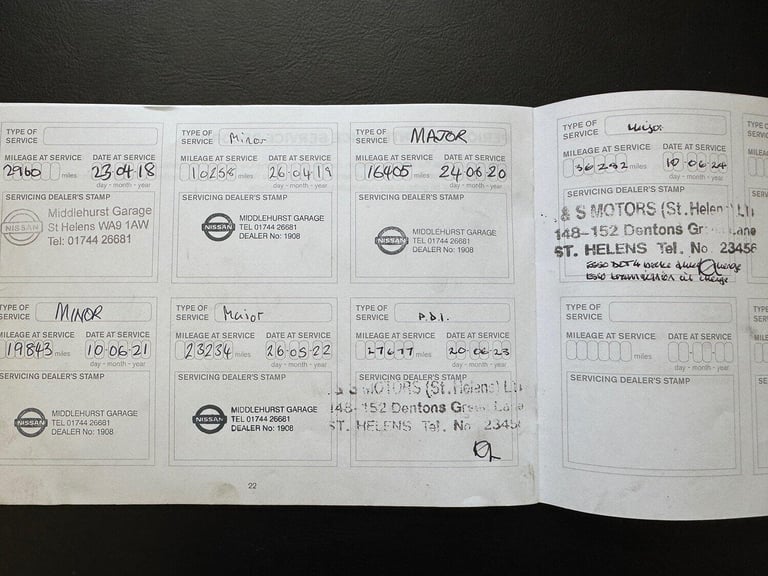 TYPE OF SERVICE
MILEAGE AT SERVICE DATE AT SERVICE
2960 miles 23 04 18
day - month - year
SERVICING DEALER'S STAMP
NISSAN
Middlehurst Garage
St Helens WA9 1AW
Tel: 01744 26681
TYPE OF SERVICE Minor
MILEAGE AT SERVICE DATE AT SERVICE
10258 miles 26 04 19
day - month - year
SERVICING DEALER'S STAMP
NISSAN
MIDDLEHURST GARAGE
TEL 01744 26681
DEALER No: 1908
TYPE OF SERVICE MAJOR
MILEAGE AT SERVICE DATE AT SERVICE
16405 miles 24 06 20
day - month - year
SERVICING DEALER'S STAMP
NISSAN
MIDDLEHURST GARAGE
TEL 01744 26681
DEALER No: 1908
TYPE OF SERVICE Major
MILEAGE AT SERVICE DATE AT SERVICE
miles 10 06 24
day - month - year
SERVICING DEALER'S STAMP
& S MOTORS (St. Helens) Lt
148-152 Dentons Lane
ST. HELENS Tel. No. 23456
TYPE OF SERVICE MINOR
MILEAGE AT SERVICE DATE AT SERVICE
19843 miles 10 06 21
day - month - year
SERVICING DEALER'S STAMP
NISSAN
MIDDLEHURST GARAGE
TEL 01744 26681
DEALER No: 1908
TYPE OF SERVICE Major
MILEAGE AT SERVICE DATE AT SERVICE
23234 miles 26 05 22
day - month - year
SERVICING DEALER'S STAMP
NISSAN
MIDDLEHURST GARAGE
TEL 01744 26681
DEALER No: 1908
TYPE OF SERVICE P.D.I.
MILEAGE AT SERVICE DATE AT SERVICE
27677 miles 20 06 23
day - month - year
SERVICING DEALER'S STAMP
& S MOTORS (St. Helens) Lt
148-152 Dentons Green Lane
ST. HELENS Tel. No 23456
TYPE OF SERVICE
MILEAGE AT SERVICE DATE AT SERVICE
miles
day - month - year
SERVICING DEALER'S STAMP
22